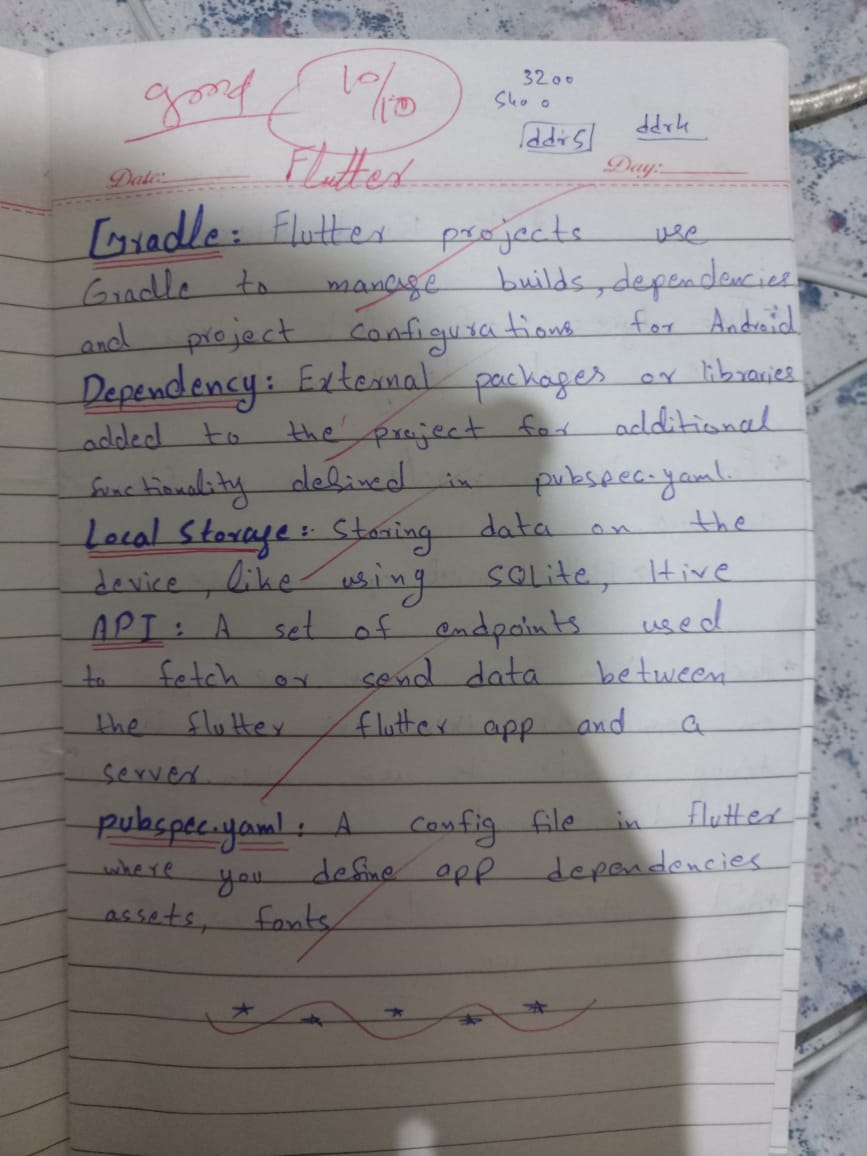 good 10/10
3200
5400
ddr5 ddr4
Date: Flutter Day:
Gradle: Flutter projects use
Gradle to manage builds, dependencies
and project configurations for Android
Dependency: External packages or libraries
added to the project for additional
functionality defined in pubspec.yaml.
Local Storage: Storing data on the
device, like using SQlite, Hive
API: A set of endpoints used
to fetch or send data between
the flutter flutter app and a
server.
pubspec.yaml: A config file in flutter
where you define app dependencies
assets, fonts